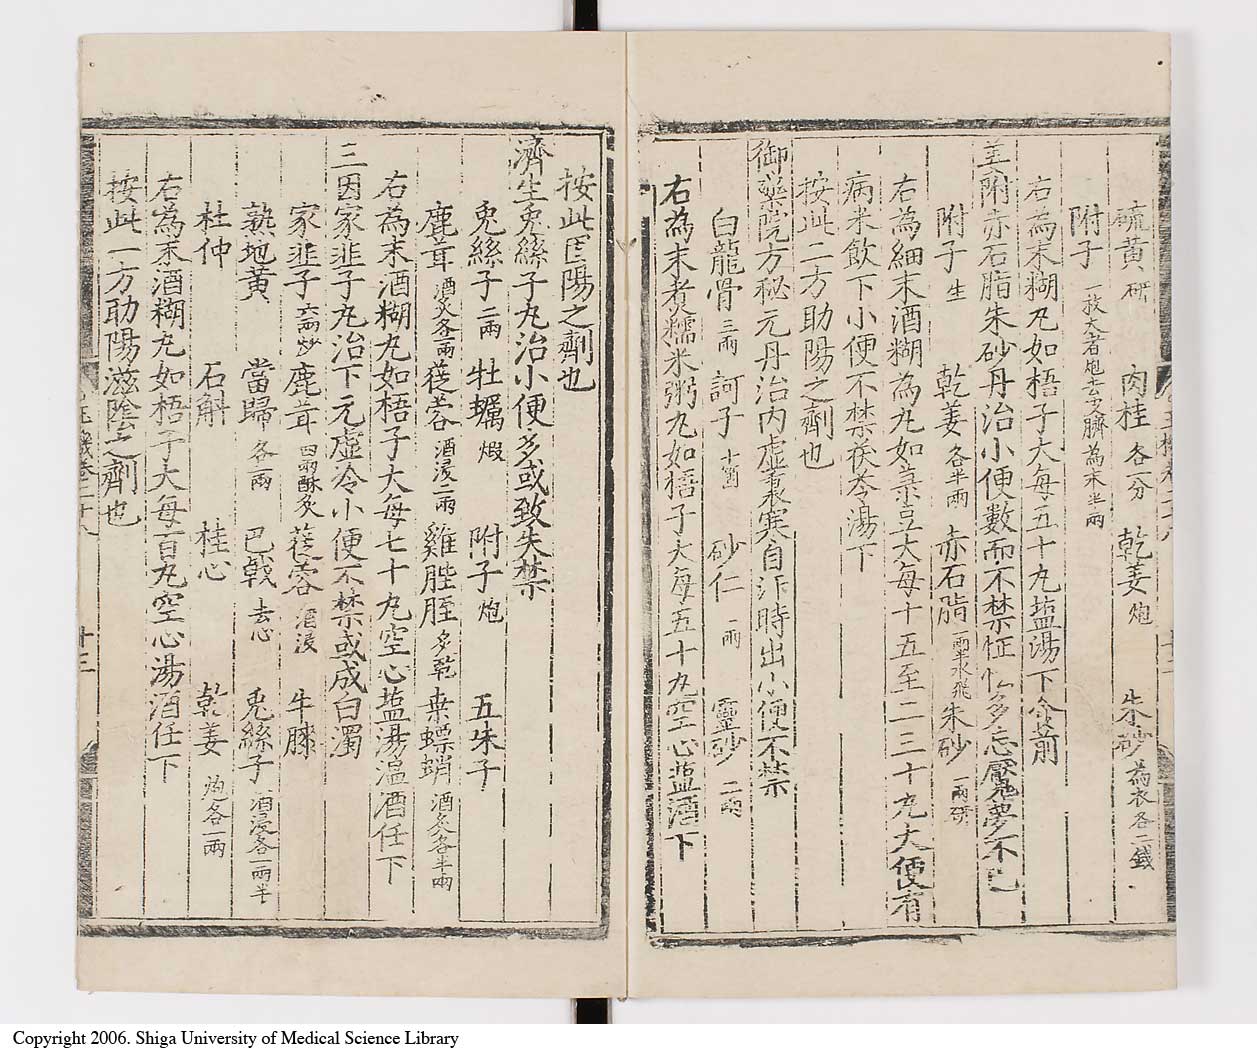 硫黄 研 肉桂 各一分 乾姜 炮 朱砂 為衣各二錢
附子 一枚大者炮去皮臍為末半兩
右為末糊丸如梧子大每五十丸塩湯下食前
姜附赤石脂朱砂丹治小便數而不禁怔忪多忘魘夢不已
附子 生 乾姜 各半兩 赤石脂 一兩半水飛 朱砂 一兩研
右為細末酒糊為丸如菉豆大每十五至二三十丸大便有
病米飲下小便不禁茯苓湯下
按此二方助陽之劑也
御藥院方秘元丹治內虛裏寒自汗時出小便不禁
白龍骨 三兩 訶子 十箇 砂仁 一兩 靈砂 二兩
右為末煮糯米粥丸如梧子大每五十丸空心塩酒下
按此匡陽之劑也
濟生兎絲子丸治小便多或致失禁
兎絲子 二兩 牡蠣 煆 附子 炮 五味子
鹿茸 酒炙各一兩 蓯蓉 酒浸二兩 雞膍胵 炙乾 桑螵蛸 酒炙各半兩
右為末酒糊丸如梧子大每七十丸空心塩湯溫酒任下
三因家韭子丸治下元虛冷小便不禁或成白濁
家韭子 六兩炒 鹿茸 四兩酥炙 蓯蓉 酒浸 牛膝
熟地黃 當歸 各二兩 巴戟 去心 兎絲子 酒浸各一兩半
杜仲 石斛 桂心 乾姜 炮各一兩
右為末酒糊丸如梧子大每百丸空心湯酒任下
按此一方助陽滋陰之劑也
玉機卷二十八
十三
Copyright 2006. Shiga University of Medical Science Library